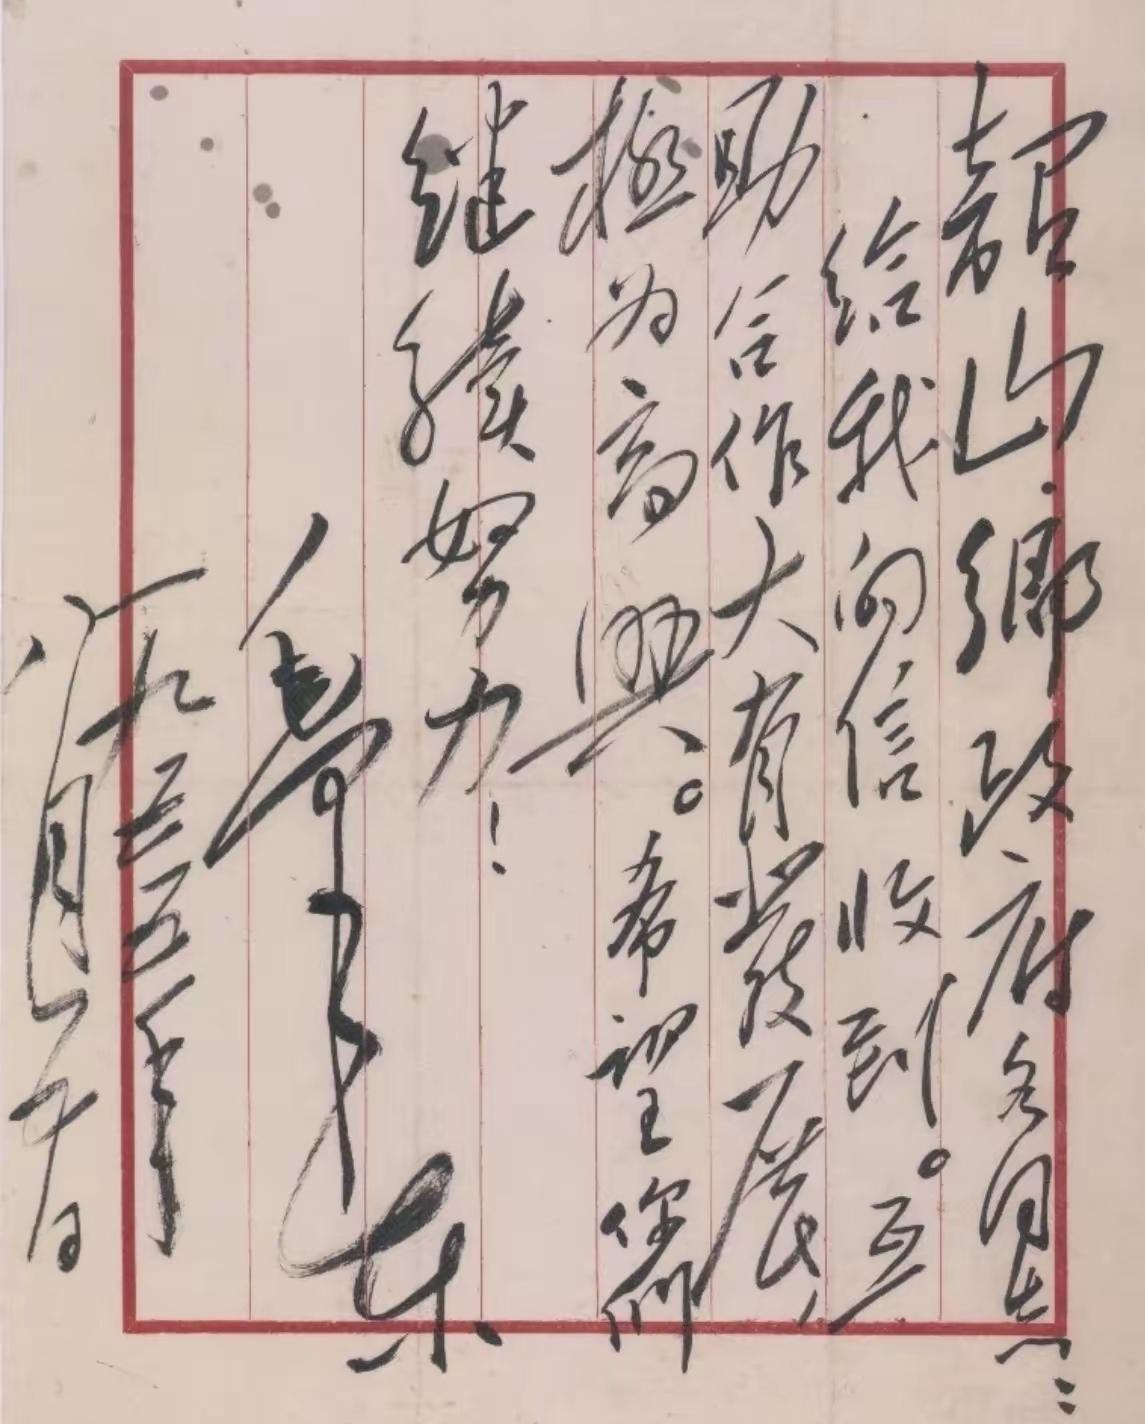 韶山鄉政府各同志：
给我的信收到。互
助合作大有發展，
極为高興。希望你们
继續努力！
毛泽东
一九五五年
八月廿日